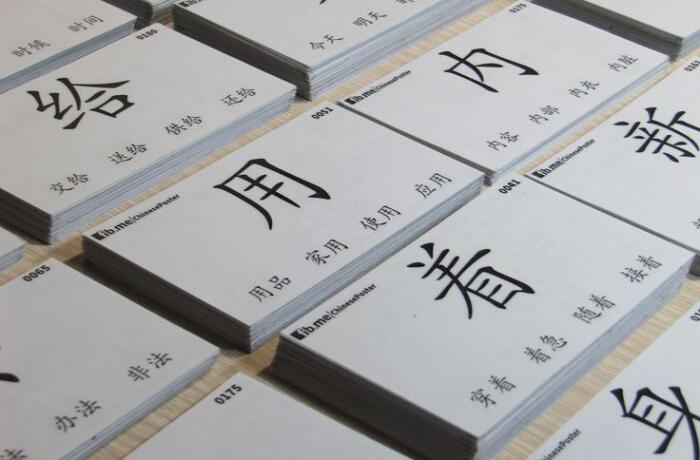 时候 时间
今天 明天
0180
给
交给 送给 供给 还给
内
ib.me/ChinesePoster
内容 内部 内衣 内脏
新
0051
用
ib.me/ChinesePoster
用品 家用 使用 应用
0041
着
ib.me/ChinesePoster
穿着 着急 随着 接着
0065
办法 非法
0175
身